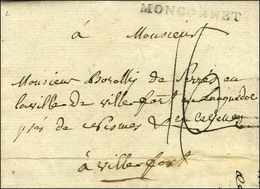 MONCORNET
à Monsieur
Monsieur Borelly de Serres en
la ville de villefort en Languedoc
près de
à villefort